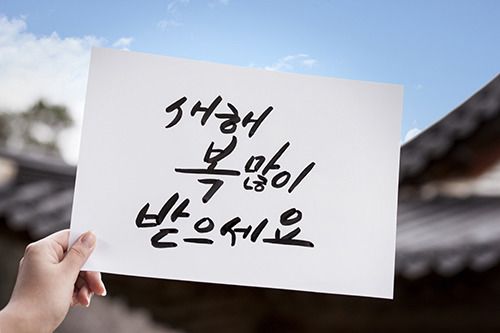 새해
복많이
받으세요